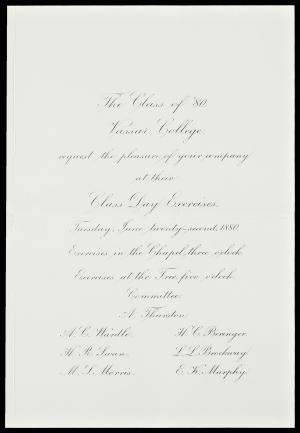 The Class of '80,
Vassar College,
request the pleasure of your company
at their
Class Day Exercises,
Tuesday, June twenty-second, 1880.
Exercises in the Chapel, three o'clock.
Exercises at the Tree, five o'clock.
Committee.
A. Thurston,
A. C. Wardle, H. C. Beringer,
H. R. Swan, L. L. Brockway,
M. S. Morris, E. K. Murphy.